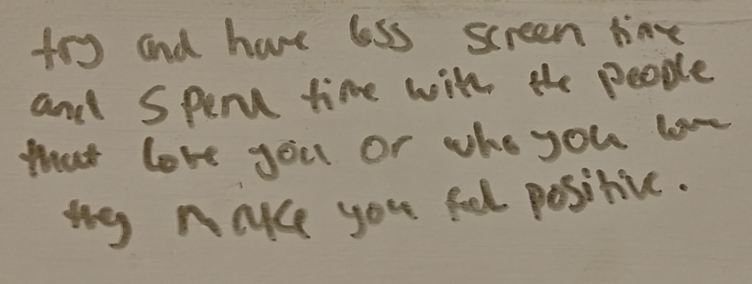 try and have less screen time
and spend time with the people
that love you or who you love
they make you feel positive.